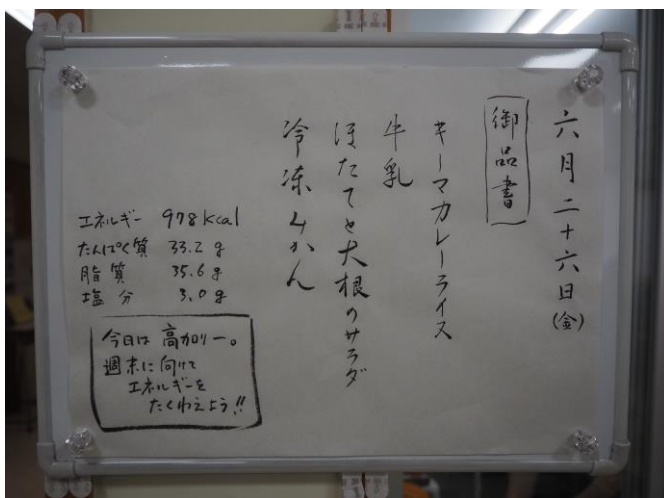 六月二十六日(金)
御品書
キーマカレーライス
牛乳
ほたてと大根のサラダ
冷凍みかん
エネルギー 978kcal
たんぱく質 33.2g
脂質 35.6g
塩分 3.0g
今日は高カロリー。
週末に向けて
エネルギーを
たくわえよう!!